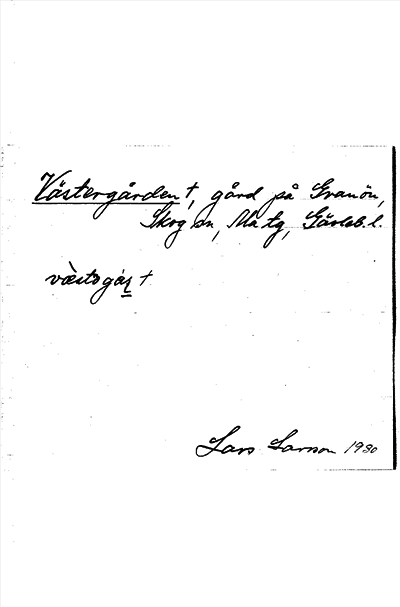 Västergården †, gård på Granön,
Skog sn, Ala tg, Gävleb. l.
Lars Larson 1930